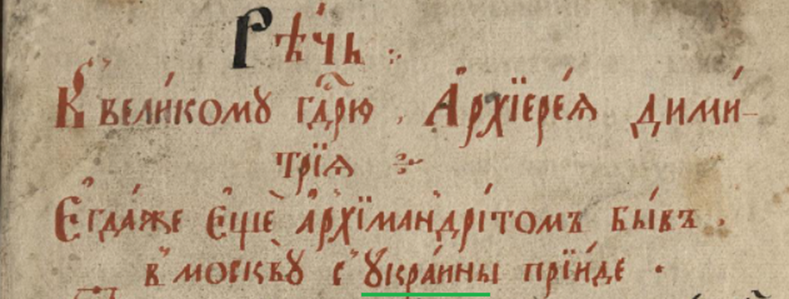 Рѣ́чь
К̾ вели́комꙋ гдⷭ҇рю, А҆рхїере́ѧ дими́-
трїѧ
Е҆гда́же е҆щѐ а҆рхїмандрі́томъ бы́въ.
в̾ москвꙋ̀ с̾ ꙋ҆краи́ны прїи́де.